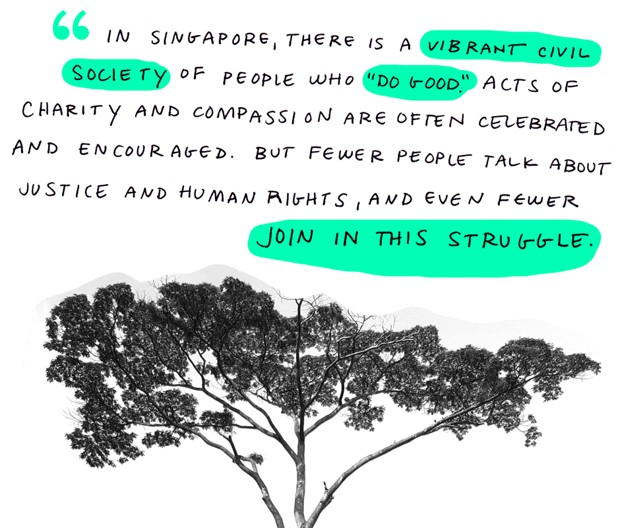 “ IN SINGAPORE, THERE IS A VIBRANT CIVIL
SOCIETY OF PEOPLE WHO "DO GOOD." ACTS OF
CHARITY AND COMPASSION ARE OFTEN CELEBRATED
AND ENCOURAGED. BUT FEWER PEOPLE TALK ABOUT
JUSTICE AND HUMAN RIGHTS, AND EVEN FEWER
JOIN IN THIS STRUGGLE.